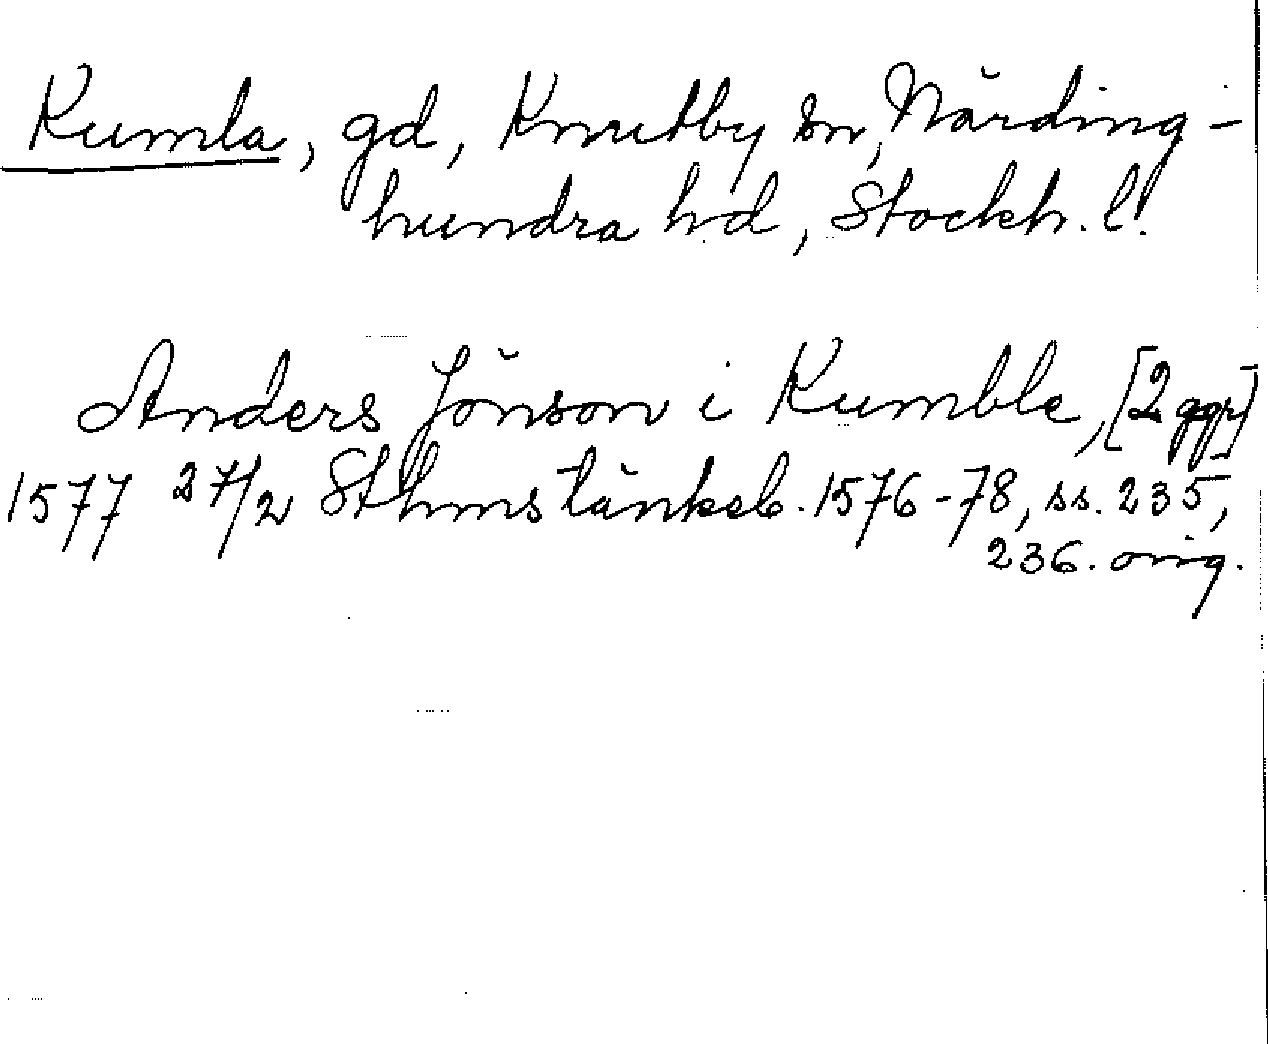 Kumla, gd, Knutby sn, Närding-
hundra hd, Stockh. l.
Anders Jönson i Kumble, [2 ggr]
1577 27/2 Sthms tänkeb. 1576-78, ss. 235,
236. orig.